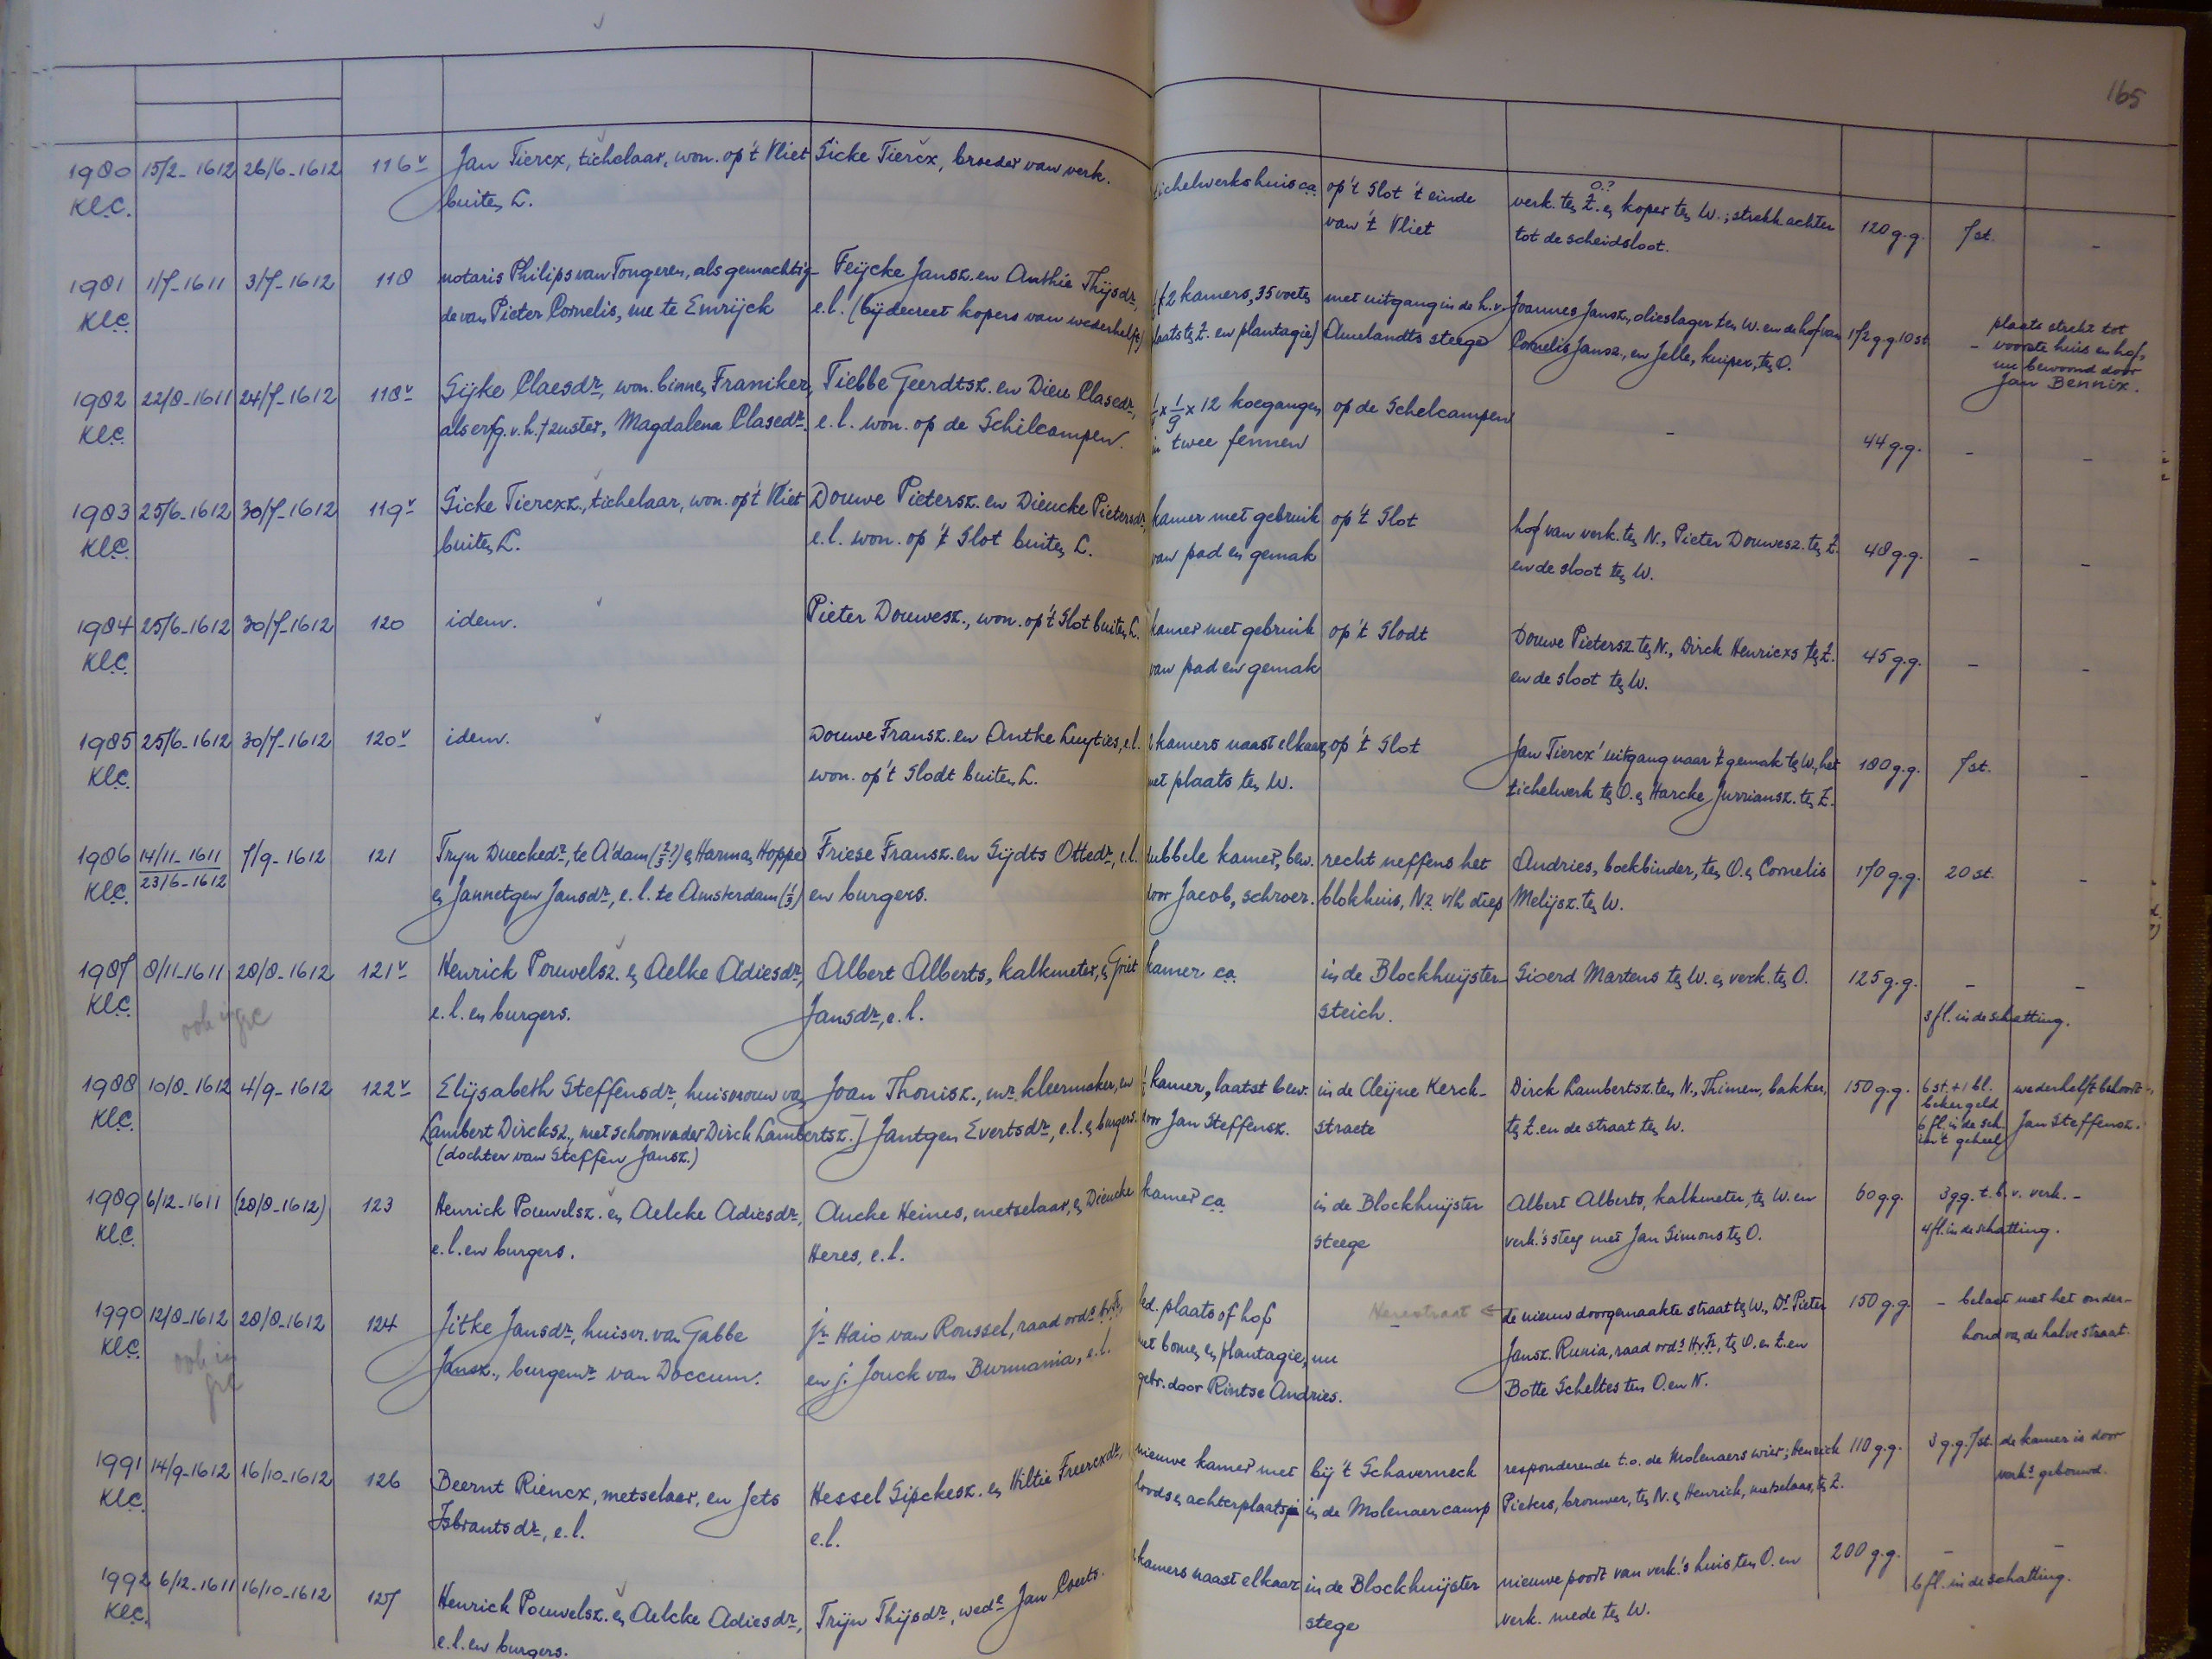 165
1980 15/2-1612 26/6-1612 116v Jan Tiercx, tichelaar, won. op 't Vliet Sicke Tiercx, broeder van verk. tichelwerkshuis ca. op 't Slot 't einde verk. ten Z. en koper ten W.; strekk. achter 120 g.g. 7 st. -
O?
Kl.C. buiten L. van 't Vliet tot de scheidsloot.
1981 1/7-1611 3/7-1612 118 notaris Philips van Tongeren, als gemachtig- Feijcke Jansz. en Anthie Thijsdr, 2 kamers, 35 voeten met uitgang in de h.v. Joannes Jansz., olieslager ten W. en de hof van 172 g.g. 10 st. - plaats strekt tot
Kl.C. de van Pieter Cornelis, nu te Emrijck e.l. (bij decreet kopers van wederhelft) plaats ten Z. en plantagie) Amelandts steege Cornelis Jansz., en Jelle, kuiper, ten O. voorste huis en hof,
nu bewoond door
Jan Bennix.
1982 22/8-1611 24/7-1612 118v Sijke Claesdr, won. binnen Franiker, Tiebbe Geerdtsz. en Dieu Clasedr, x 1/9 x 12 koegangen op de Schelcampen - 44 g.g. - -
Kl.C. als erfg. v. h. † zuster, Magdalena Clasedr. e.l. won. op de Schilcampen. in twee fennen
1983 25/6-1612 30/7-1612 119v Sicke Tiercxz., tichelaar, won. op 't Vliet Douwe Pietersz. en Dieucke Pietersdr, kamer met gebruik op 't Slot hof van verk. ten N., Pieter Douwesz. ten Z. 48 g.g. - -
Kl.C. buiten L. e.l. won. op 't Slot buiten L. van pad en gemak en de sloot ten W.
1984 25/6-1612 30/7-1612 120 idem. Pieter Douwesz., won. op 't Slot buiten L. kamer met gebruik op 't Slodt Douwe Pietersz. ten N., Dirck Henricxs ten Z. 45 g.g. - -
Kl.C. van pad en gemak en de sloot ten W.
1985 25/6-1612 30/7-1612 120v idem. Douwe Fransz. en Antke Luyties, e.l. 2 kamers naast elkaar, op 't Slot Jan Tiercx' uitgang naar 't gemak ten W., het 180 g.g. 7 st. -
Kl.C. won. op 't Slodt buiten L. met plaats ten W. tichelwerk ten O. en Harcke Jurriansz. ten Z.
1986 14/11-1611 7/9-1612 121 Tryn Dueckedr, te A'dam (2/3?) en Harman Hoppe Friese Fransz. en Sijdts Ottedr, e.l. dubbele kamer, bew. recht neffens het Andries, boekbinder, ten O. en Cornelis 170 g.g. 20 st. -
Kl.C. 23/6-1612 en Jannetgen Jansdr, e.l. te Amsterdam (1/3) en burgers. door Jacob, schroer. blokhuis, NZ v/h diep Melijsz. ten W.
1987 8/11-1611 28/8-1612 121v Henrick Pouwelsz. en Aelke Adiesdr, Albert Alberts, kalkmeter, en Griet kamer ca. in de Blockhuijster- Sioerd Martens ten W. en verk. ten O. 125 g.g. - -
Kl.C. ook in e.l. en burgers. Jansdr, e.l. steich. 3 fl. in de schatting.
1988 10/8-1612 4/9-1612 122v Elijsabeth Steffensdr, huisvrouw van Joan Thonisz., mr. kleermaker, en 1/2 kamer, laatst bew. in de Cleijne Kerck- Dirck Lambertsz. ten N., Thimen, bakker, 150 g.g. 6 st. + 1 bl. wederhelft behoort
Kl.C. Lambert Dircksz., met schoonvader Dirck Lambertsz. Jantgen Evertsdr, e.l. en burgers. door Jan Steffensz. straete ten Z. en de straat ten W. bekergeld Jan Steffensz.
(dochter van Steffen Jansz.) 6 fl. in de sch.
in 't geheel
1989 6/12-1611 (28/8-1612) 123 Henrick Pouwelsz. en Aelcke Adiesdr, Aucke Heines, metselaar, en Dieucke kamer ca in de Blockhuijster Albert Alberts, kalkmeter, ten W. en 60 g.g. 3 g.g. t.b.v. verk. -
Kl.C. e.l. en burgers. Heres, e.l. steege verk.'s steeg met Jan Simons ten O. 4 fl. in de schatting.
1990 12/8-1612 28/8-1612 124 Jitke Jansdr, huisvr. van Gabbe jr. Haio van Roussel, raad ords HvFr, led. plaats of hof Herestraat ← de nieuw doorgemaakte straat ten W., Dr Pieter 150 g.g. - belast met het onder-
Kl.C. ook in Jansz., burgemr van Doccum. en j. Jouck van Burmania, e.l. met bomen en plantagie, nu Jansz. Runia, raad ords HvFr, ten O. en Z. en houd van de halve straat.
gebr. door Rintse Andries. Botte Scheltes ten O. en N.
1991 14/9-1612 16/10-1612 126 Beernt Riencx, metselaar, en Jets Hessel Sipckesz. en Hiltie Freercxdr, nieuwe kamer met bij 't Schaverneck responderende t.o. de Molenaers wier; Henrick 110 g.g. 3 g.g. 7 st. de kamer is door
Kl.C. Isbrantsdr, e.l. e.l. loods en achterplaatsje in de Molenaercamp Pieters, brouwer, ten N. en Henrick, metselaar, ten Z. verks gebouwd.
1992 6/12-1611 16/10-1612 127 Henrick Pouwelsz. en Aelcke Adiesdr, Trijn Thijsdr, wede Jan Coerts. kamers naast elkaar in de Blockhuijster nieuwe poort van verk.'s huis ten O. en 200 g.g. - -
Kl.C. e.l. en burgers. stege verk. mede ten W. 6 fl. in de schatting.